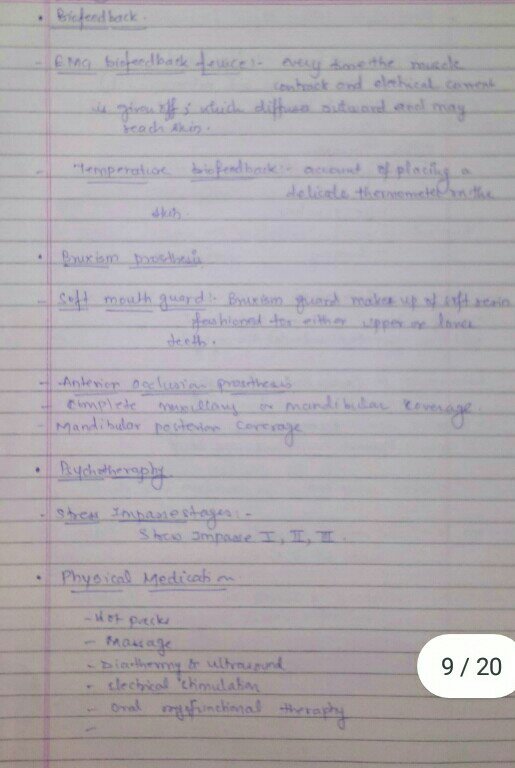 • Biofeedback.
- EMG biofeedback device:- every time the muscle
contract and electrical current
is given off; which diffuse outward and may
reach skin.
- Temperature biofeedback:- account of placing a
delicate thermometer on the
skin.
• Bruxism prosthesis
- Soft mouth guard:- Bruxism guard makes up of soft resin
fashioned for either upper or lower
teeth.
- Anterior occlusion prosthesis
- Complete maxillary or mandibular coverage.
- Mandibular posterior coverage
• Psychotherapy
- Stress Impasse stages:-
Stress Impasse I, II, III.
• Physical Medication
- Hot packs
- Massage
- Diathermy & ultrasound
- electrical stimulation
- Oral myofunctional theraphy
-
9 / 20